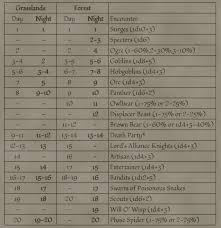 Grasslands Forest
Day Night Day Night Encounter
1 1 1 1 Surges (1d10+3)
– – – 2-3 Specters (1d6)
2 – 2 4 Ogre (1-60%, 2-30%, 3-10%)
3-4 2 5 5-6 Goblins (1d8+5)
5-6 3-4 6-7 7-8 Hobgoblins (1d4+3)
7 5 8 9 Orc (1d4+3)
8 9-10 9 10 Panther (1d6+2)
– – 10 Owlbear (1-75% or 2-25%)
– – – 12 Displacer Beast (1-75% or 2-25%)
– – 11-12 – Brown Bear (1-60% or 1d4+5-40%)
9-11 11-12 13 13-14 Death Party*
12-13 13 15 – Lord's Alliance Knights (1d4+3)
14 – 16 – Artisan (1d4+3)
15 14 17 15 Entertainer (1d4+3)
16 15-16 – 16 Bandits (1d12+5)
18 17 – 17 Swarm of Poisonous Snakes
19 18 20 18 Scouts (1d6+2)
– – – 19 Will O' Wisp (1d4+3)
20 19-20 – 20 Phase Spider (1-75% or 2-25%)